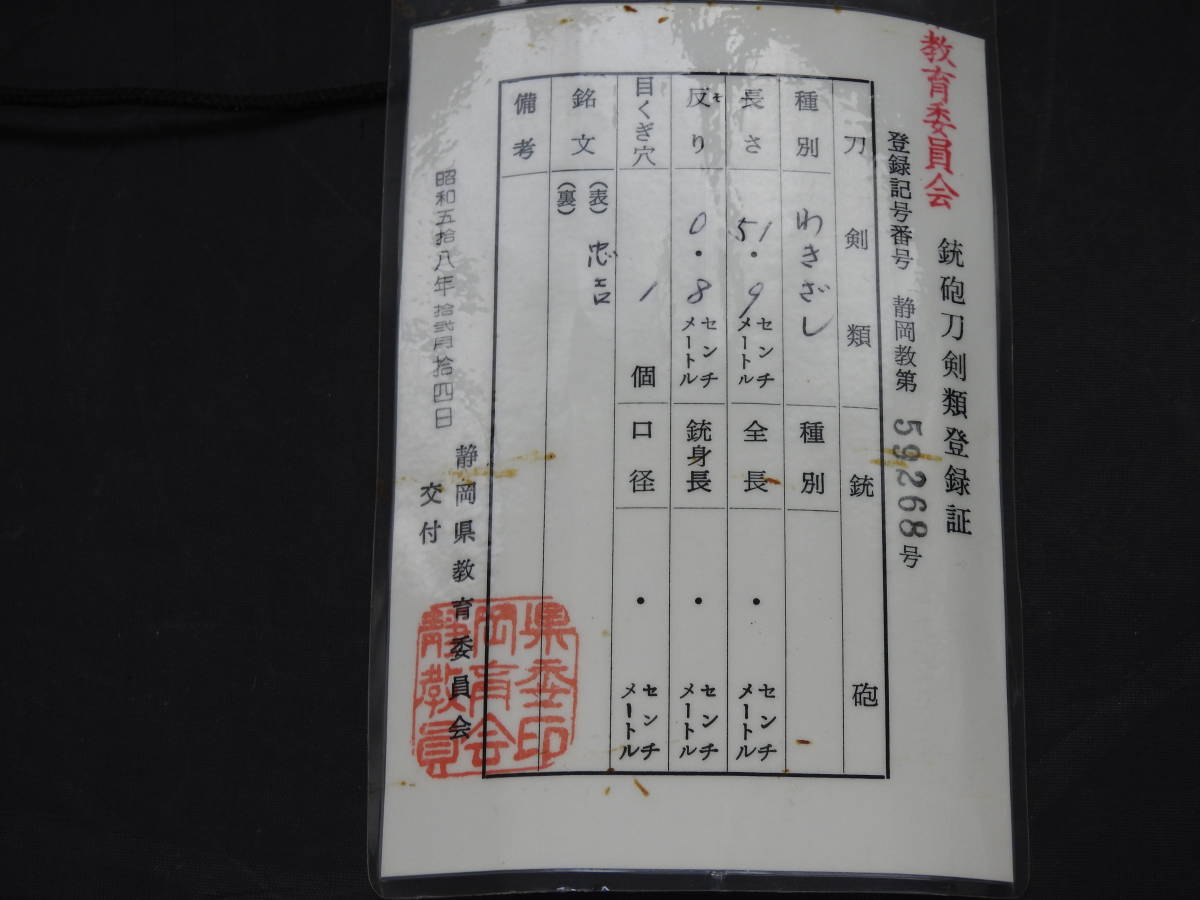 教育委員会
銃砲刀剣類登録証
登録記号番号 静岡教第 59268 号
刀剣類 銃砲
種別 わきざし 種別
長さ 51.9 センチメートル 全長 ・ センチメートル
反り 0.8 センチメートル 銃身長 ・ センチメートル
目くぎ穴 1 個 口径 ・ センチメートル
銘文 (表) 忠吉
(裏)
備考
昭和五拾八年拾弐月拾四日
静岡県教育委員会
交付
静岡県教育委員会印